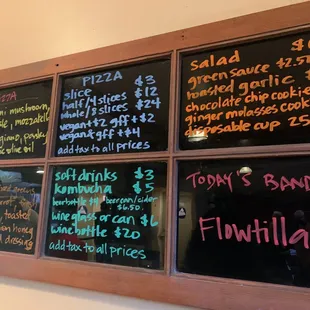 PIZZA
mushroom,
mozzarel
olive oil
PIZZA
slice $3
half/4 slices $12
whole/8 slices $24
vegan +$2
veggie & gf +$4
add tax to all prices
Salad $
green sauce $2.50
toasted garlic $
chocolate chip cookie
ginger molasses cook
disposable cup 25
toasted
an honey
d dressing
soft drinks $3
kombucha $5
beer bottle $4 beer can/cider $6.50
wine glass or can $6
wine bottle $20
add tax to all prices
Today's Band
Flowtilla